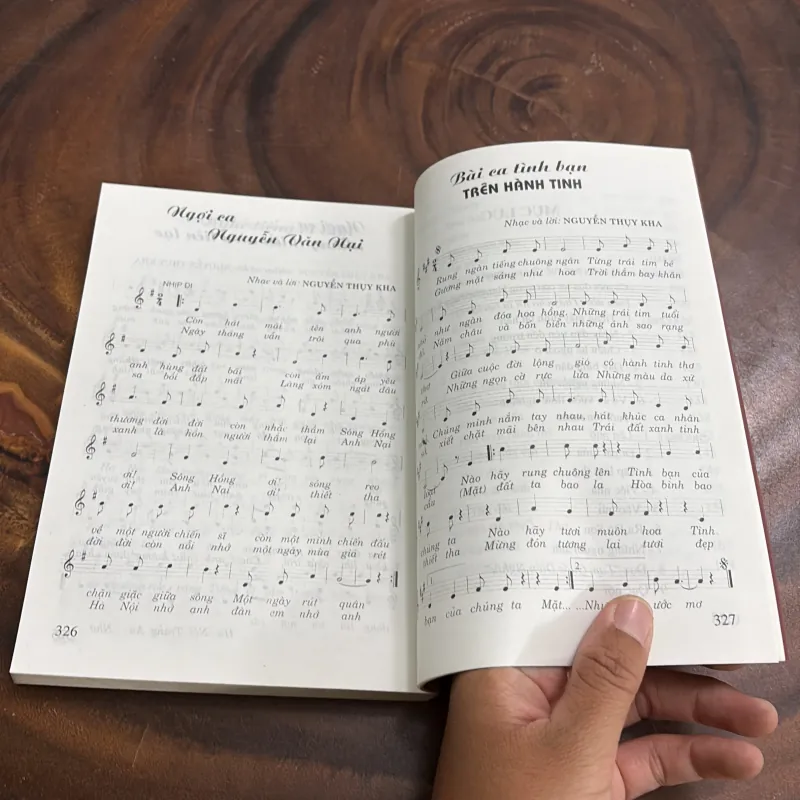 Ngợi ca
Nguyễn Văn Nại
NHỊP ĐI
Nhạc và lời: NGUYỄN THỤY KHA
Còn hát mãi tên anh người
Ngày tháng vẫn trôi qua phù
anh hùng đất bãi còn ấm áp yêu
sa bồi đắp mãi Làng xóm ngát dâu
thương đời đời còn nhắc thầm Sông Hồng
xanh là hồn người thắm lại Anh Nại
ơi! Sông Hồng ơi! sóng reo
ơi! Anh Nại ơi! thiết tha
về một người chiến sĩ còn một mình chiến đấu
đời đời còn nỗi nhớ một ngày mùa giá rét
chặn giặc giữa sông Một ngày rút quân
Hà Nội nhớ anh đàn em nhớ anh
326
Bài ca tình bạn
TRÊN HÀNH TINH
Nhạc và lời: NGUYỄN THỤY KHA
Rung ngân tiếng chuông ngân Từng trái tim bé
Gương mặt sáng như hoa Trời thắm bay khăn
nhỏ như ngàn đóa hoa hồng. Những trái tim tuổi
đỏ. Năm châu và bốn biển những ánh sao rạng
Giữa cuộc đời lộng gió có hành tinh thơ
Những ngọn cờ rực lửa Những màu da xứ
Chúng mình nắm tay nhau, hát khúc ca nhân
xiết chặt mãi bên nhau Trái đất xanh tình
loại Nào hãy rung chuông lên Tình bạn của
cầu (Mặt) đất ta bao la Hòa bình bao
chúng ta Nào hãy tươi muôn hoa Tình
thiết tha Mừng đón tương lai tươi đẹp
1 2
bạn của chúng ta Mặt... ...Như ước mơ
327